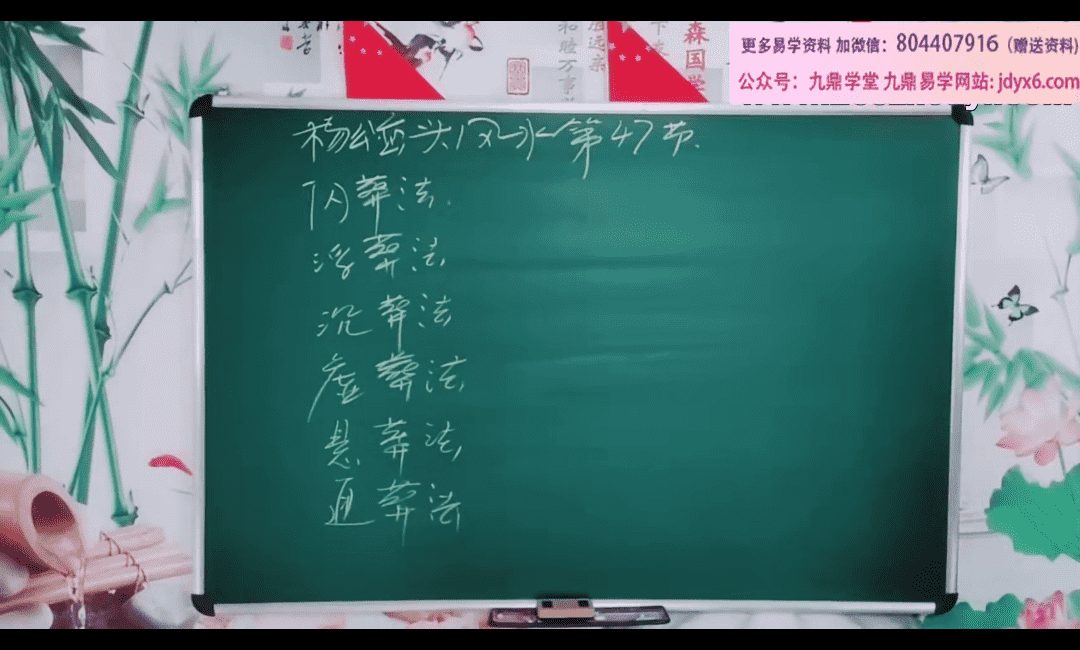 更多易学资料 加微信：804407916（赠送资料）
公众号：九鼎学堂 九鼎易学网站：jdyx6.com
森国学
和睦万事
杨公峦头风水第47节.
闪葬法.
浮葬法
沉葬法
虚葬法
悬葬法
通葬法